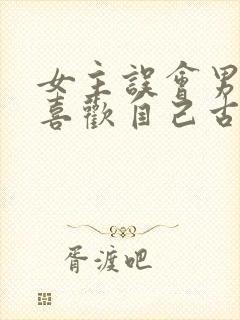 女主誤會男
喜歡自己古
胥渡吧